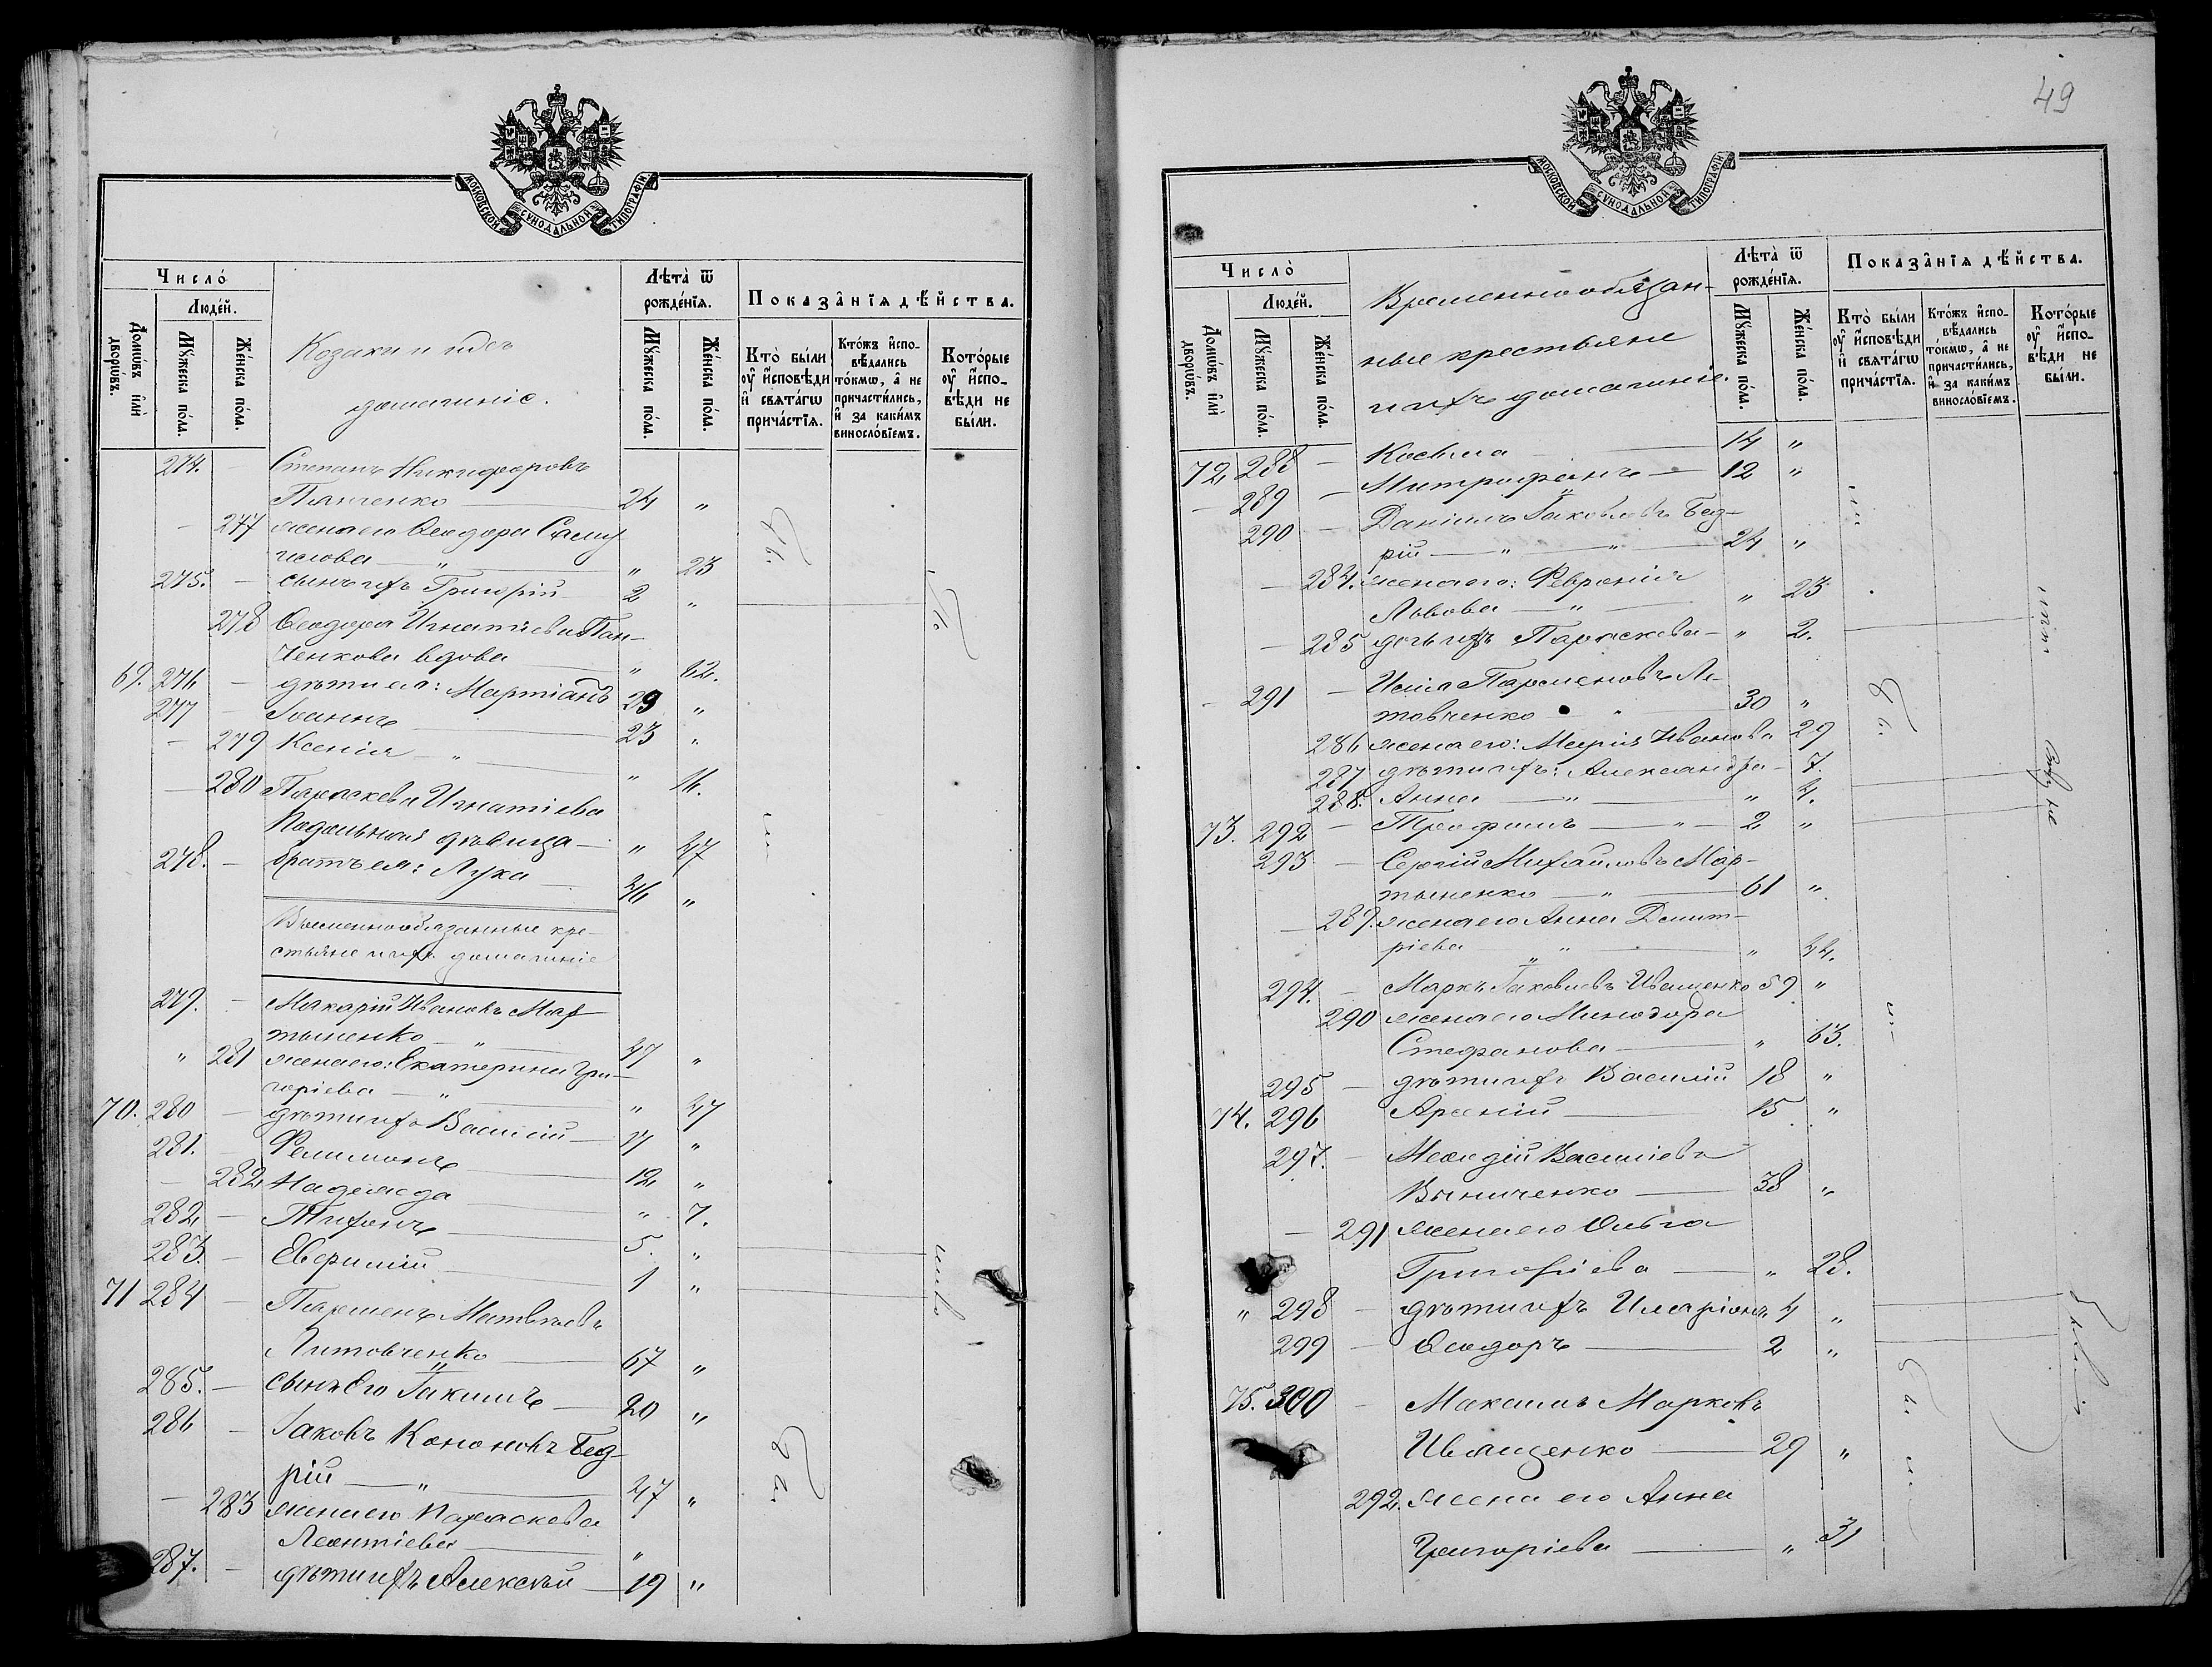 МОСКОВСКОЙ СУНОДАЛЬНОЙ ТИПОГРАФІИ
Число̀
Людей.
Домѡвъ и҆лѝ дворѡвъ.
Мꙋжеска пола.
Женска пола.
Козаки и ихъ
домашніе.
Лѣта̀ ѿ рожде́нїѧ.
Мꙋжеска пола.
Женска пола.
Показа̑нїѧ дѣ́йства.
Кто̀ бы́ли оу҆ и҆́сповѣди и҆ свѧта́гѡ прича́стїѧ.
Кто́жъ и҆спо-вѣ́дались то́кмѡ, а҆ не причасти́лись, и҆ за каки́мъ винословїемъ.
Кото́рые оу҆ и҆́спо-вѣди не бы́ли.
274. Степанъ Никифоровъ
Панченко 24 "
277 жена его Ѳеодора Самуи
илова " " 23
275. сынъ ихъ Григорій 2 "
278 Ѳеодора Игнатіева Пан-
ченкова вдова " 62.
69. 276 дѣти ея: Мартіанъ 29 "
277 Іоаннъ 23 "
279 Ксенія " " 16.
280 Параскева Игнатіева
дѣвица " 47
278. братъ ея: Лука 46 "
Временнообязанные кре-
стьяне и ихъ домашніе
279. Макарій Ивановъ Мар
тыненко " 47 "
" 281 жена его: Екатерина Гри-
горіева " " 47
70. 280 дѣти ихъ Василій 17 "
281. Филимонъ 12 "
282 Надежда " 7.
282 Тихонъ 5. "
283. Евфимій 1 "
71 284 Парменъ Матвѣевъ
Литовченко 67 "
285. сынъ Его Іакимъ 20 "
286 Іаковъ Кононовъ Бед-
рій " 47 "
283 жена его Параскева
Леонтіева "
287. дѣти ихъ Алексѣй 19 "
49
МОСКОВСКОЙ СУНОДАЛЬНОЙ ТИПОГРАФІИ
Число̀
Людей.
Домѡвъ и҆лѝ дворѡвъ.
Мꙋжеска пола.
Женска пола.
Временнообязан-
ные крестьяне
и ихъ домашніе.
Лѣта̀ ѿ рожде́нїѧ.
Мꙋжеска пола.
Женска пола.
Показа̑нїѧ дѣ́йства.
Кто̀ бы́ли оу҆ и҆́сповѣди и҆ свѧта́гѡ прича́стїѧ.
Кто́жъ и҆спо-вѣ́дались то́кмѡ, а҆ не причасти́лись, и҆ за каки́мъ винословїемъ.
Кото́рые оу҆ и҆́спо-вѣди не бы́ли.
72 288 Косьма 14 "
289 Митрофанъ 12 "
290 Даніилъ Іаковлевъ Бед-
рій " " 24 "
284. жена его: Февронія
Львова " " 23
285 дочь ихъ Параскева " 2.
291 Исаія Парменовъ Ли
товченко " 30 "
286 жена его: Марія Иванова 29
287 дѣти ихъ: Александра 7.
288. Анна " " 4.
73. 292 Трофимъ " 2 "
293 Сергій Михаиловъ Мар-
тыненко " 61 "
289. жена его Анна Димит-
ріева " " 44.
294. Маркъ Іаковлевъ Иващенко 59 "
290 жена его Минодора
Стефанова " 63.
295 дѣти ихъ Василій 18 "
74. 296 Арсеній 15 "
297. Меѳодій Василіевъ
Винниченко 38 "
291 жена его Ольга
Григоріева " 28.
" 298 дѣти ихъ Иларіонъ 4 "
299 Ѳеодоръ 2 "
75. 300 Максимъ Марковъ
Иващенко 29 "
292. жена его Анна
Григоріева " 31